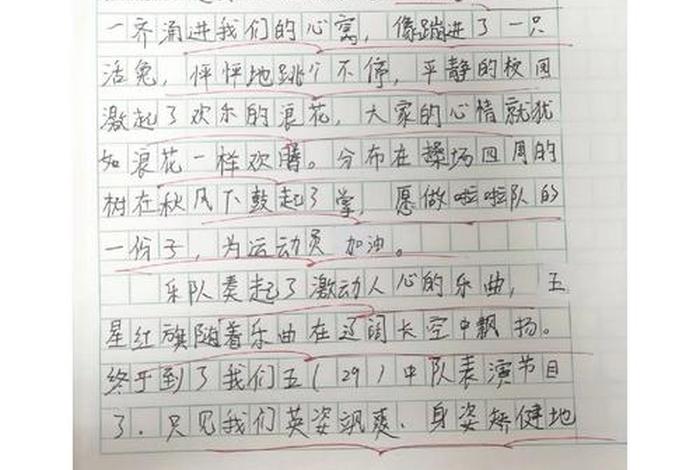 一齐涌进我们的心窝，像蹦进了一只
活兔，怦怦地跳个不停，平静的校园
激起了欢乐的浪花，大家的心情就犹
如浪花一样欢腾。分布在操场四周的
树在秋风下鼓起了掌，愿做啦啦队的
一份子，为运动员加油。
乐队奏起了激动人心的乐曲，五
星红旗随着乐曲在辽阔长空中飘扬。
终于到了我们五（29）中队表演节目
了．只见我们英姿飒爽．身姿矫健地